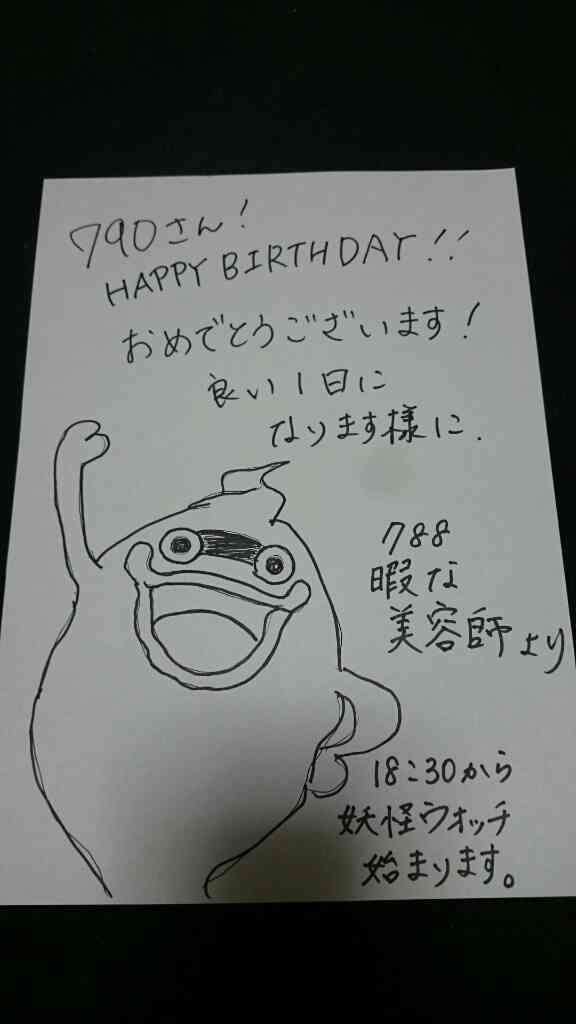 790さん!
HAPPY BIRTHDAY!!
おめでとうございます!
良い1日に
なります様に.
788
暇な
美容師より
18:30から
妖怪ウォッチ
始まります。